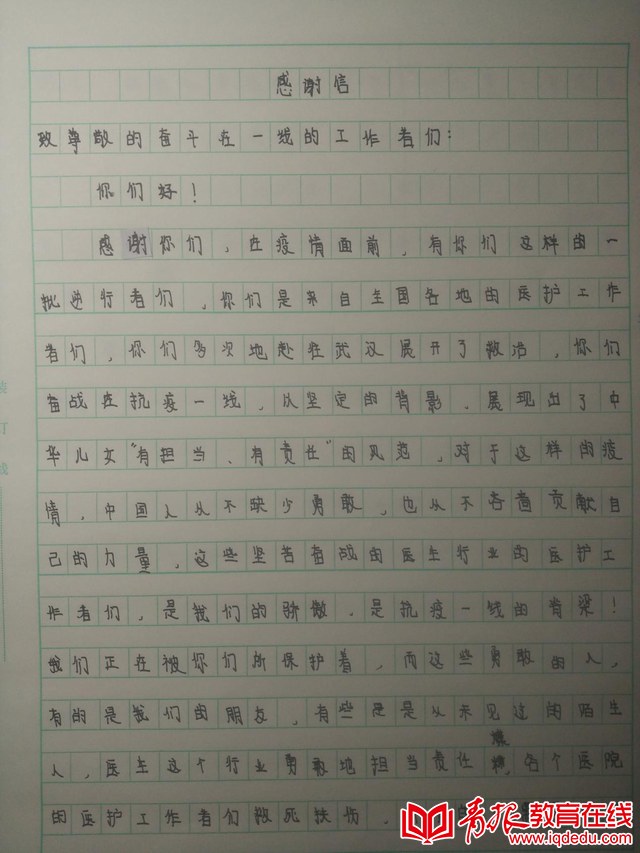 感谢信
致尊敬的奋斗在一线的工作者们：
你们好！
感谢你们，在疫情面前，有你们这样的一
批逆行者们，你们是来自全国各地的医护工作
者们，你们多次地赴往武汉展开了救治，你们
奋战在抗疫一线，以坚定的背影，展现出了中
华儿女“有担当、有责任”的风范，对于这样的疫
情，中国人从不缺少勇敢，也从不吝啬贡献自
己的力量，这些坚苦奋战的医生行业的医护工
作者们，是我们的骄傲，是抗疫一线的脊梁！
我们正在被你们所保护着，而这些勇敢的人，
有的是我们的朋友，有些是从未见过的陌生
人，医生这个行业勇敢地担当责任，各个医院
的医护工作者们救死扶伤，
装
订
线
青报教育在线
www.iqdedu.com